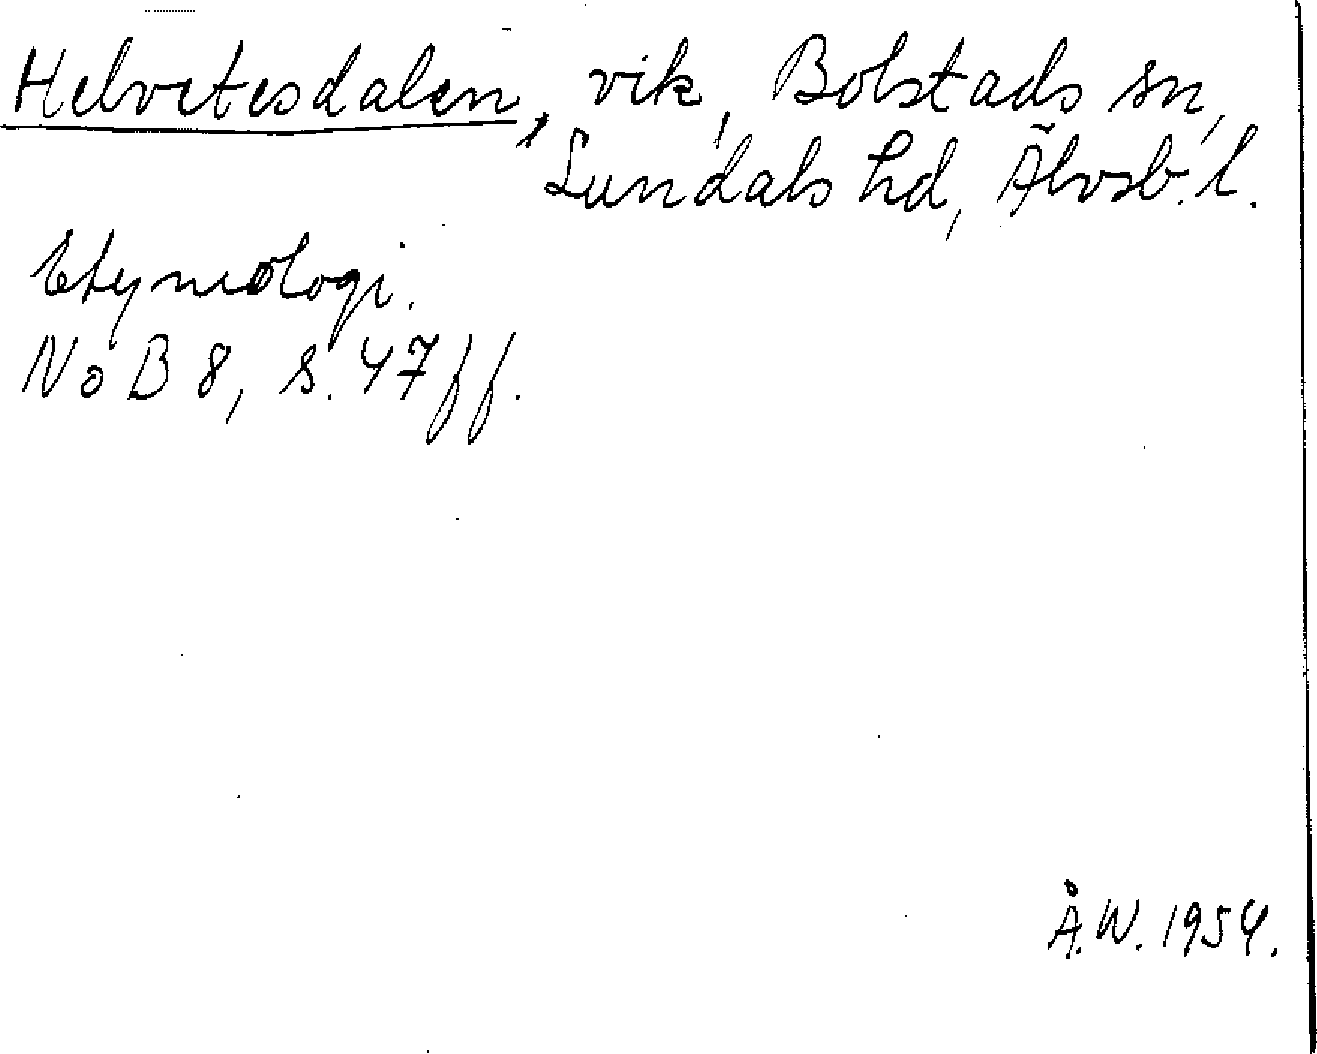 Helvetesdalen, vik, Bolstads sn,
Sundals hd, Älvsb. l.
Etymologi.
NoB 8, s. 47 ff.
Å.W. 1954.